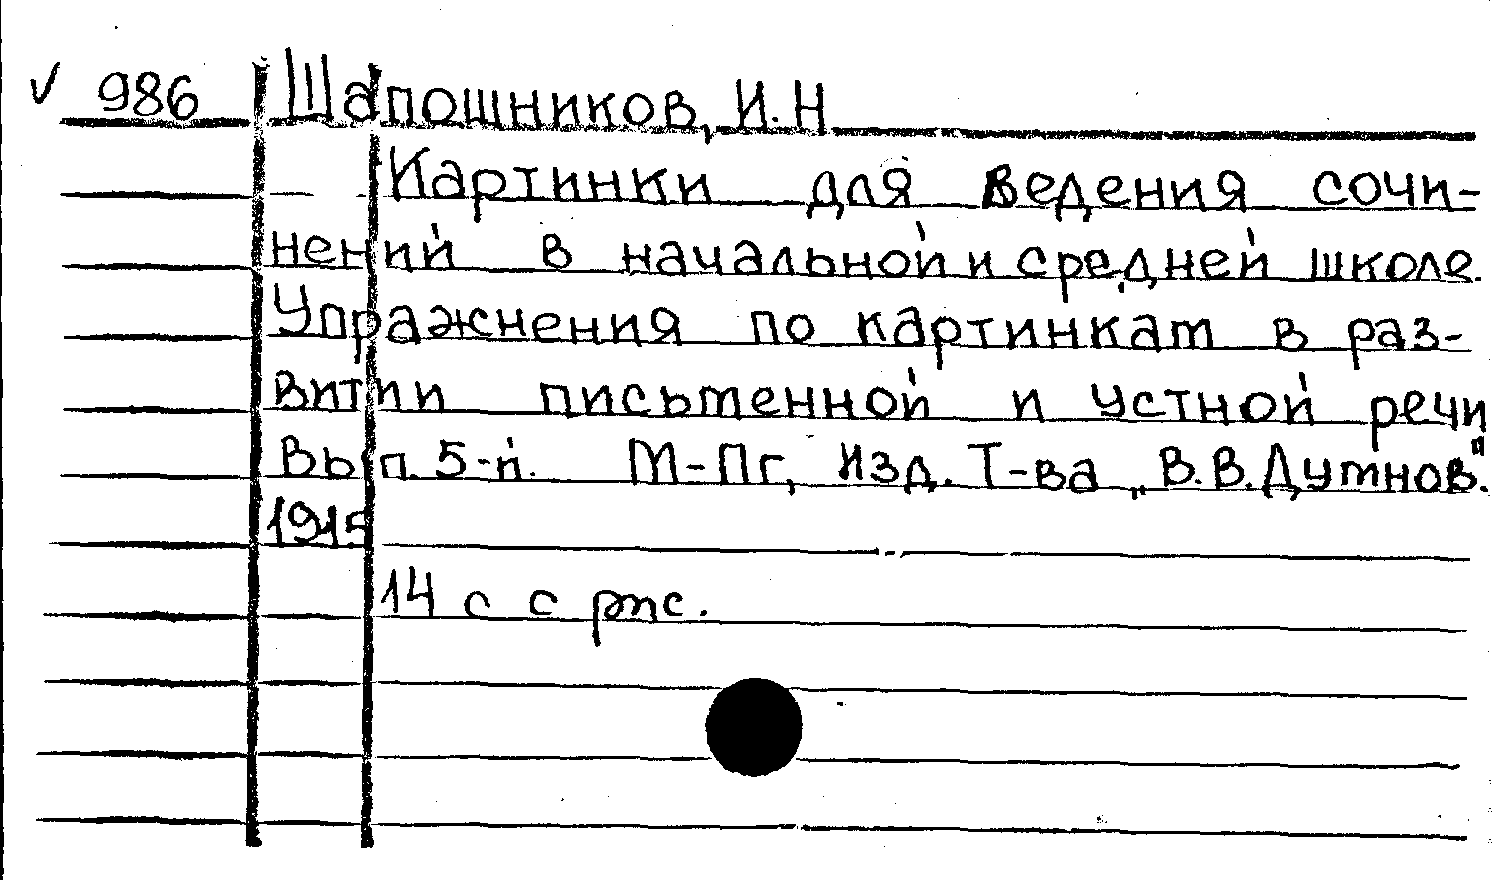 √ 986 Шапошников, И.Н
Картинки для ведения сочи-
нений в начальной и средней школе.
Упражнения по картинкам в раз-
витии письменной и устной речи
Вып. 5-й. М-Пг, Изд. Т-ва „В.В.Думнов".
1915
14 с с рис.